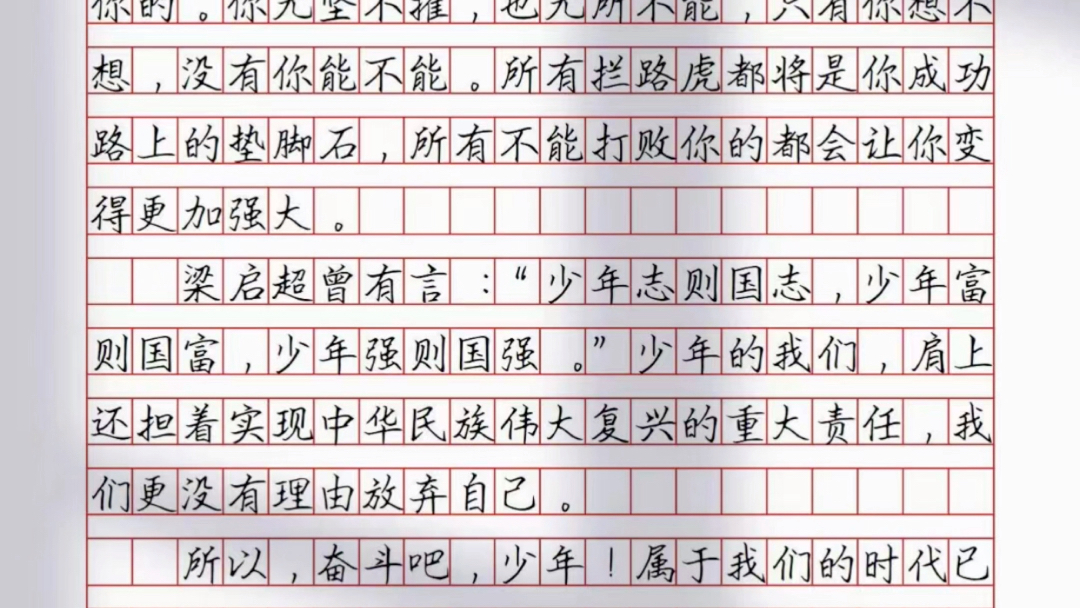 你的。你无坚不摧，也无所不能，只有你想不
想，没有你能不能。所有拦路虎都将是你成功
路上的垫脚石，所有不能打败你的都会让你变
得更加强大。
梁启超曾有言：“少年志则国志，少年富
则国富，少年强则国强。”少年的我们，肩上
还担着实现中华民族伟大复兴的重大责任，我
们更没有理由放弃自己。
所以，奋斗吧，少年！属于我们的时代已